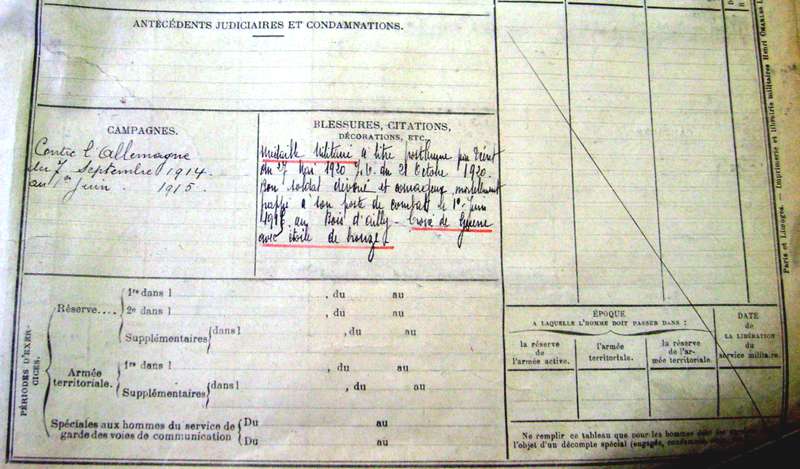 ANTÉCÉDENTS JUDICIAIRES ET CONDAMNATIONS.
CAMPAGNES.
Contre l'Allemagne
du 7 Septembre 1914
au 1er Juin 1915.
BLESSURES, CITATIONS,
DÉCORATIONS, ETC.
Médaille Militaire à titre posthume par Décret
du 27 Mai 1920 J.O. du 21 Octobre 1920.
Bon soldat dévoué et courageux mortellement
frappé à son poste de combat le 1er Juin
1915 au Bois d'Ailly - Croix de Guerre
avec étoile de bronze.
PÉRIODES D'EXER-
CICES.
Réserve....
1re dans l , du au
2e dans l , du au
Supplémentaires dans l , du au
Armée
territoriale.
1re dans l , du au
Supplémentaires dans l , du au
Spéciales aux hommes du service de
garde des voies de communication
Du au
Du au
ÉPOQUE
A LAQUELLE L'HOMME DOIT PASSER DANS :
la réserve
de
l'armée active.
l'armée
territoriale.
la réserve
de l'ar-
mée territoriale.
DATE
de
LA LIBÉRATION
du
service militaire.
Ne remplir ce tableau que pour les hommes
l'objet d'un décompte spécial (engagés,
Paris et Limoges. — Imprimerie et librairie militaires Henri CHARLES-L